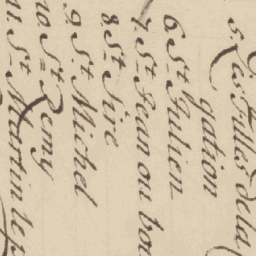 5. Les Filles de la
gation
6. St Julien
7. St Jean ou bou
8. St Sire
9. St Michel
10. St Remy
11. St Martin le p